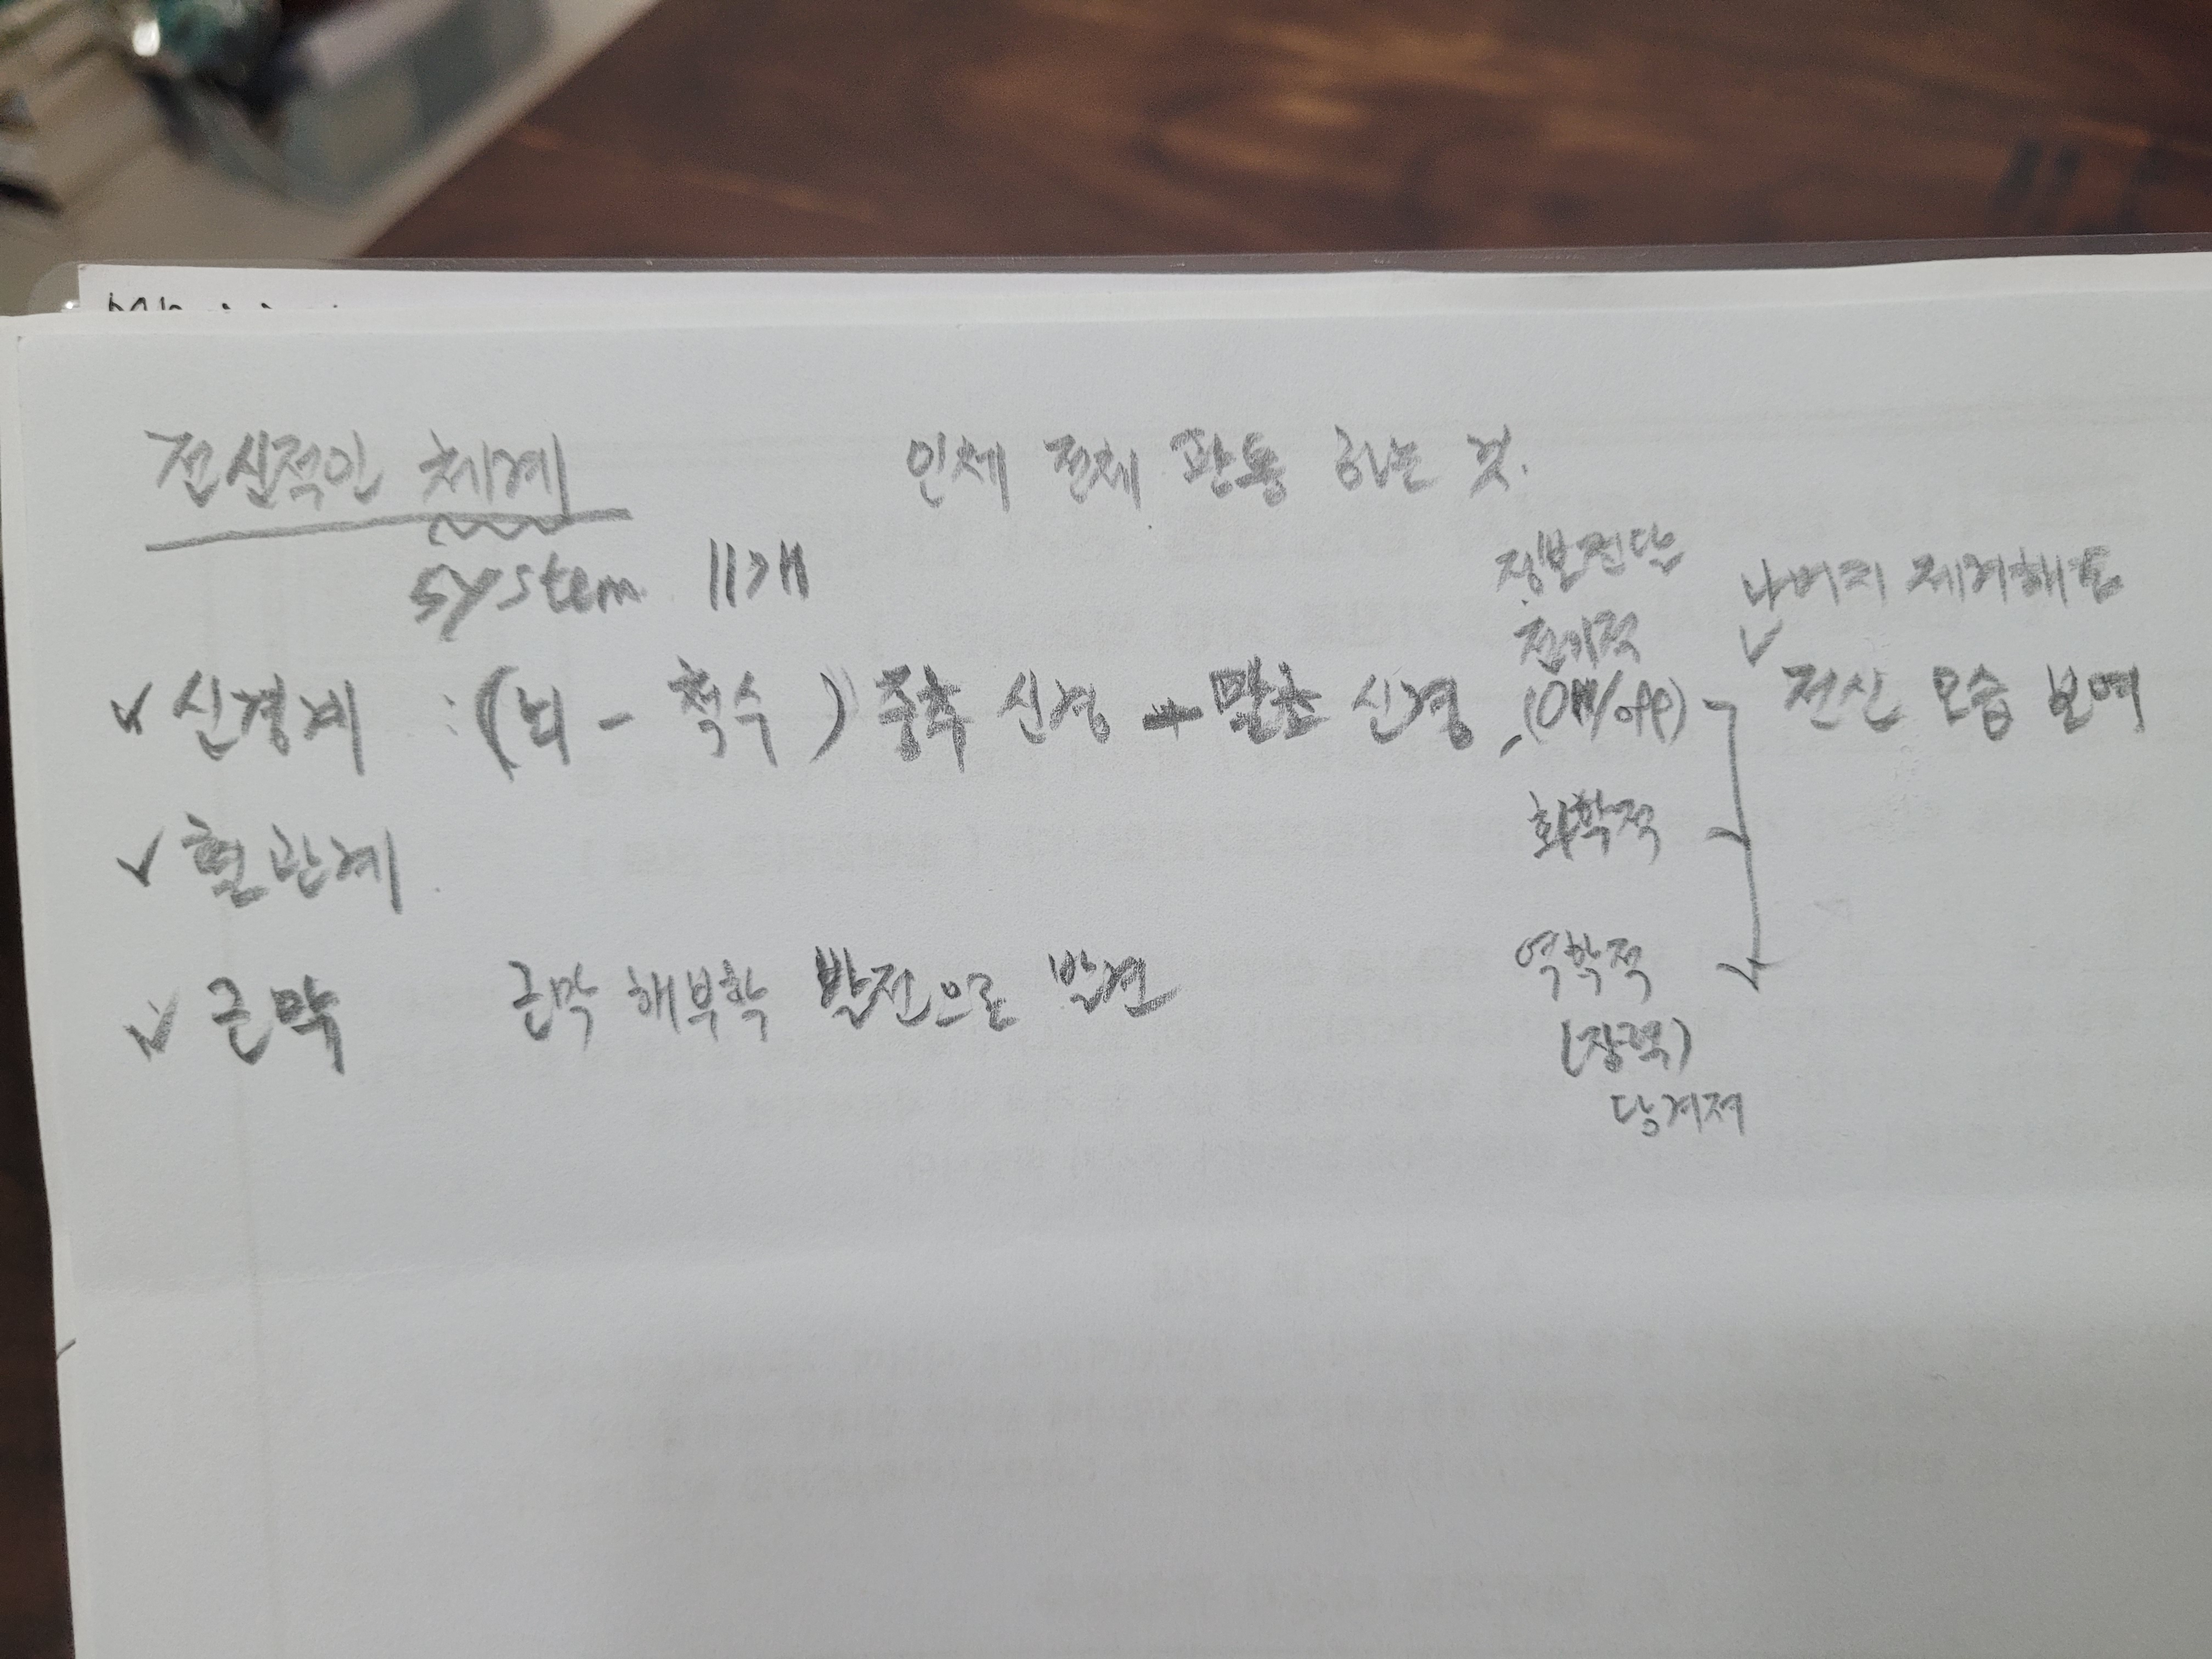 전신적인 체계 인체 전체 관통 하는 것.
system 11개
정보전달 나머지 제거해도
전기적
✓ 신경계 : (뇌 - 척수) 중추 신경 → 말초 신경 (on/off) 전신 모습 보여
✓ 혈관계 화학적
✓ 근막 근막 해부학 발전으로 발견 역학적
(장력)
당겨져